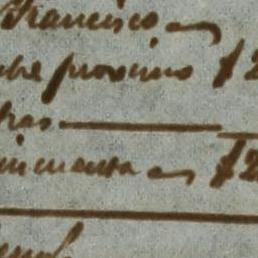 Francisco
bre proximo $2
tras
cincuenta $2